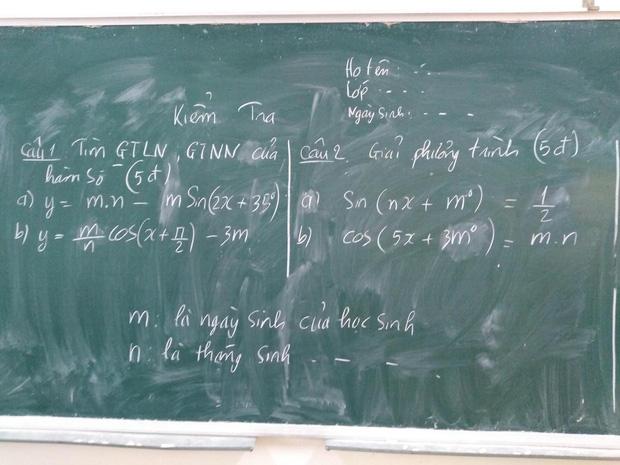 Họ tên: - -
Lớp - - -
Ngày sinh: - - -
Kiểm Tra
Câu 1 Tìm GTLN, GTNN của
hàm số (5đ)
a) y = m.n - m Sin(2x + 35°)
b) y = m/n cos(x + π/2) - 3m
Câu 2 Giải phương trình (5đ)
a) Sin (nx + m°) = 1/2
b) cos (5x + 3m°) = m.n
m: là ngày sinh của học sinh
n: là tháng sinh - - -